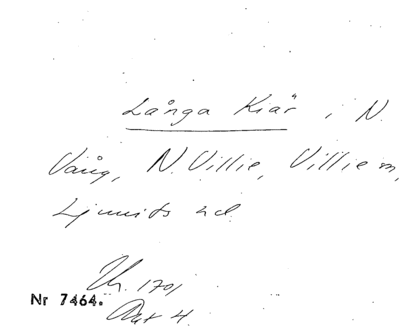 Långa Kiär, i N.
Vång, N. Villie, Villie m,
Ljunits hd.
Uh. 1701
Akt 4.
Nr 7464.